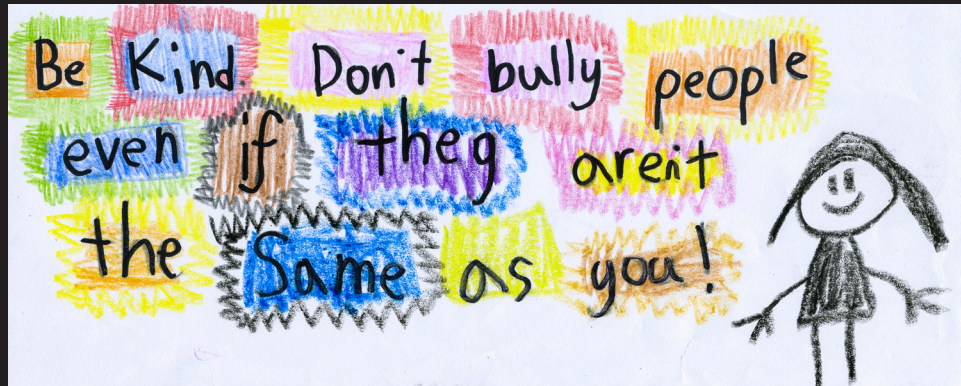 Be Kind. Don't bully people
even if they aren't
the Same as you!